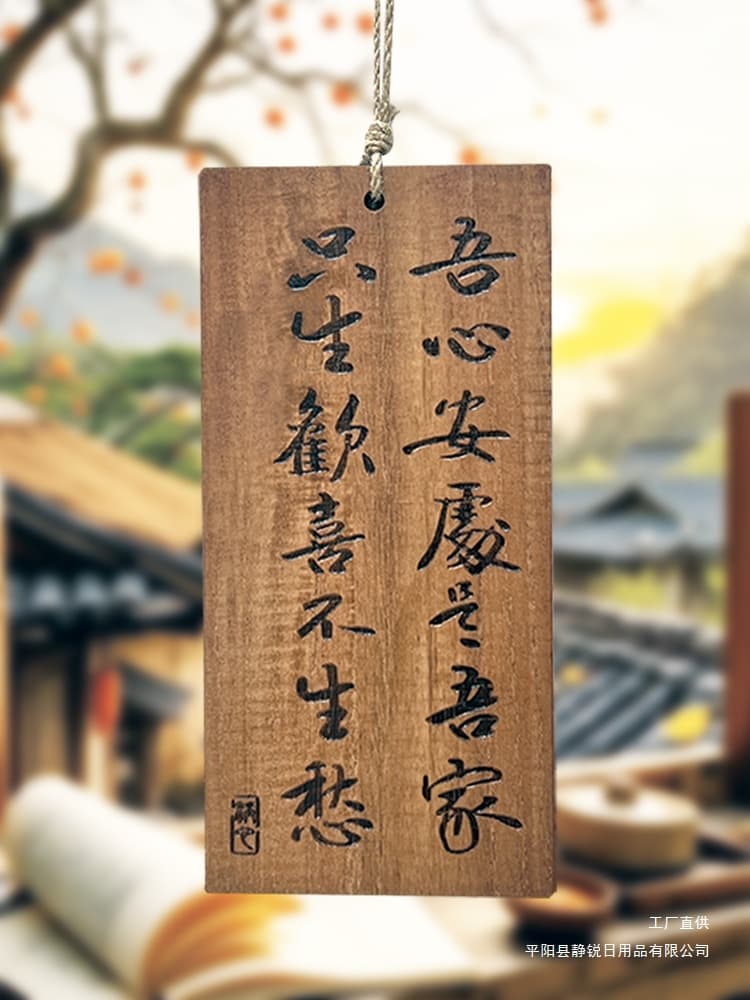 吾心安處是吾家
只生歡喜不生愁
工厂直供
平阳县静锐日用品有限公司